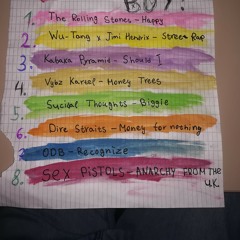 BUY!
1. The Rolling Stones - Happy
2. Wu-Tang x Jimi Hendrix - Street Rap
3. Kabaka Pyramid - Should I
4. Vybz Kartel - Money Trees
5. Sucidal Thoughts - Biggie
6. Dire Straits - Money for nothing
7. ODB - Recognize
8. SEX PiSTOLS - ANARCHY FROM THE
U.K.